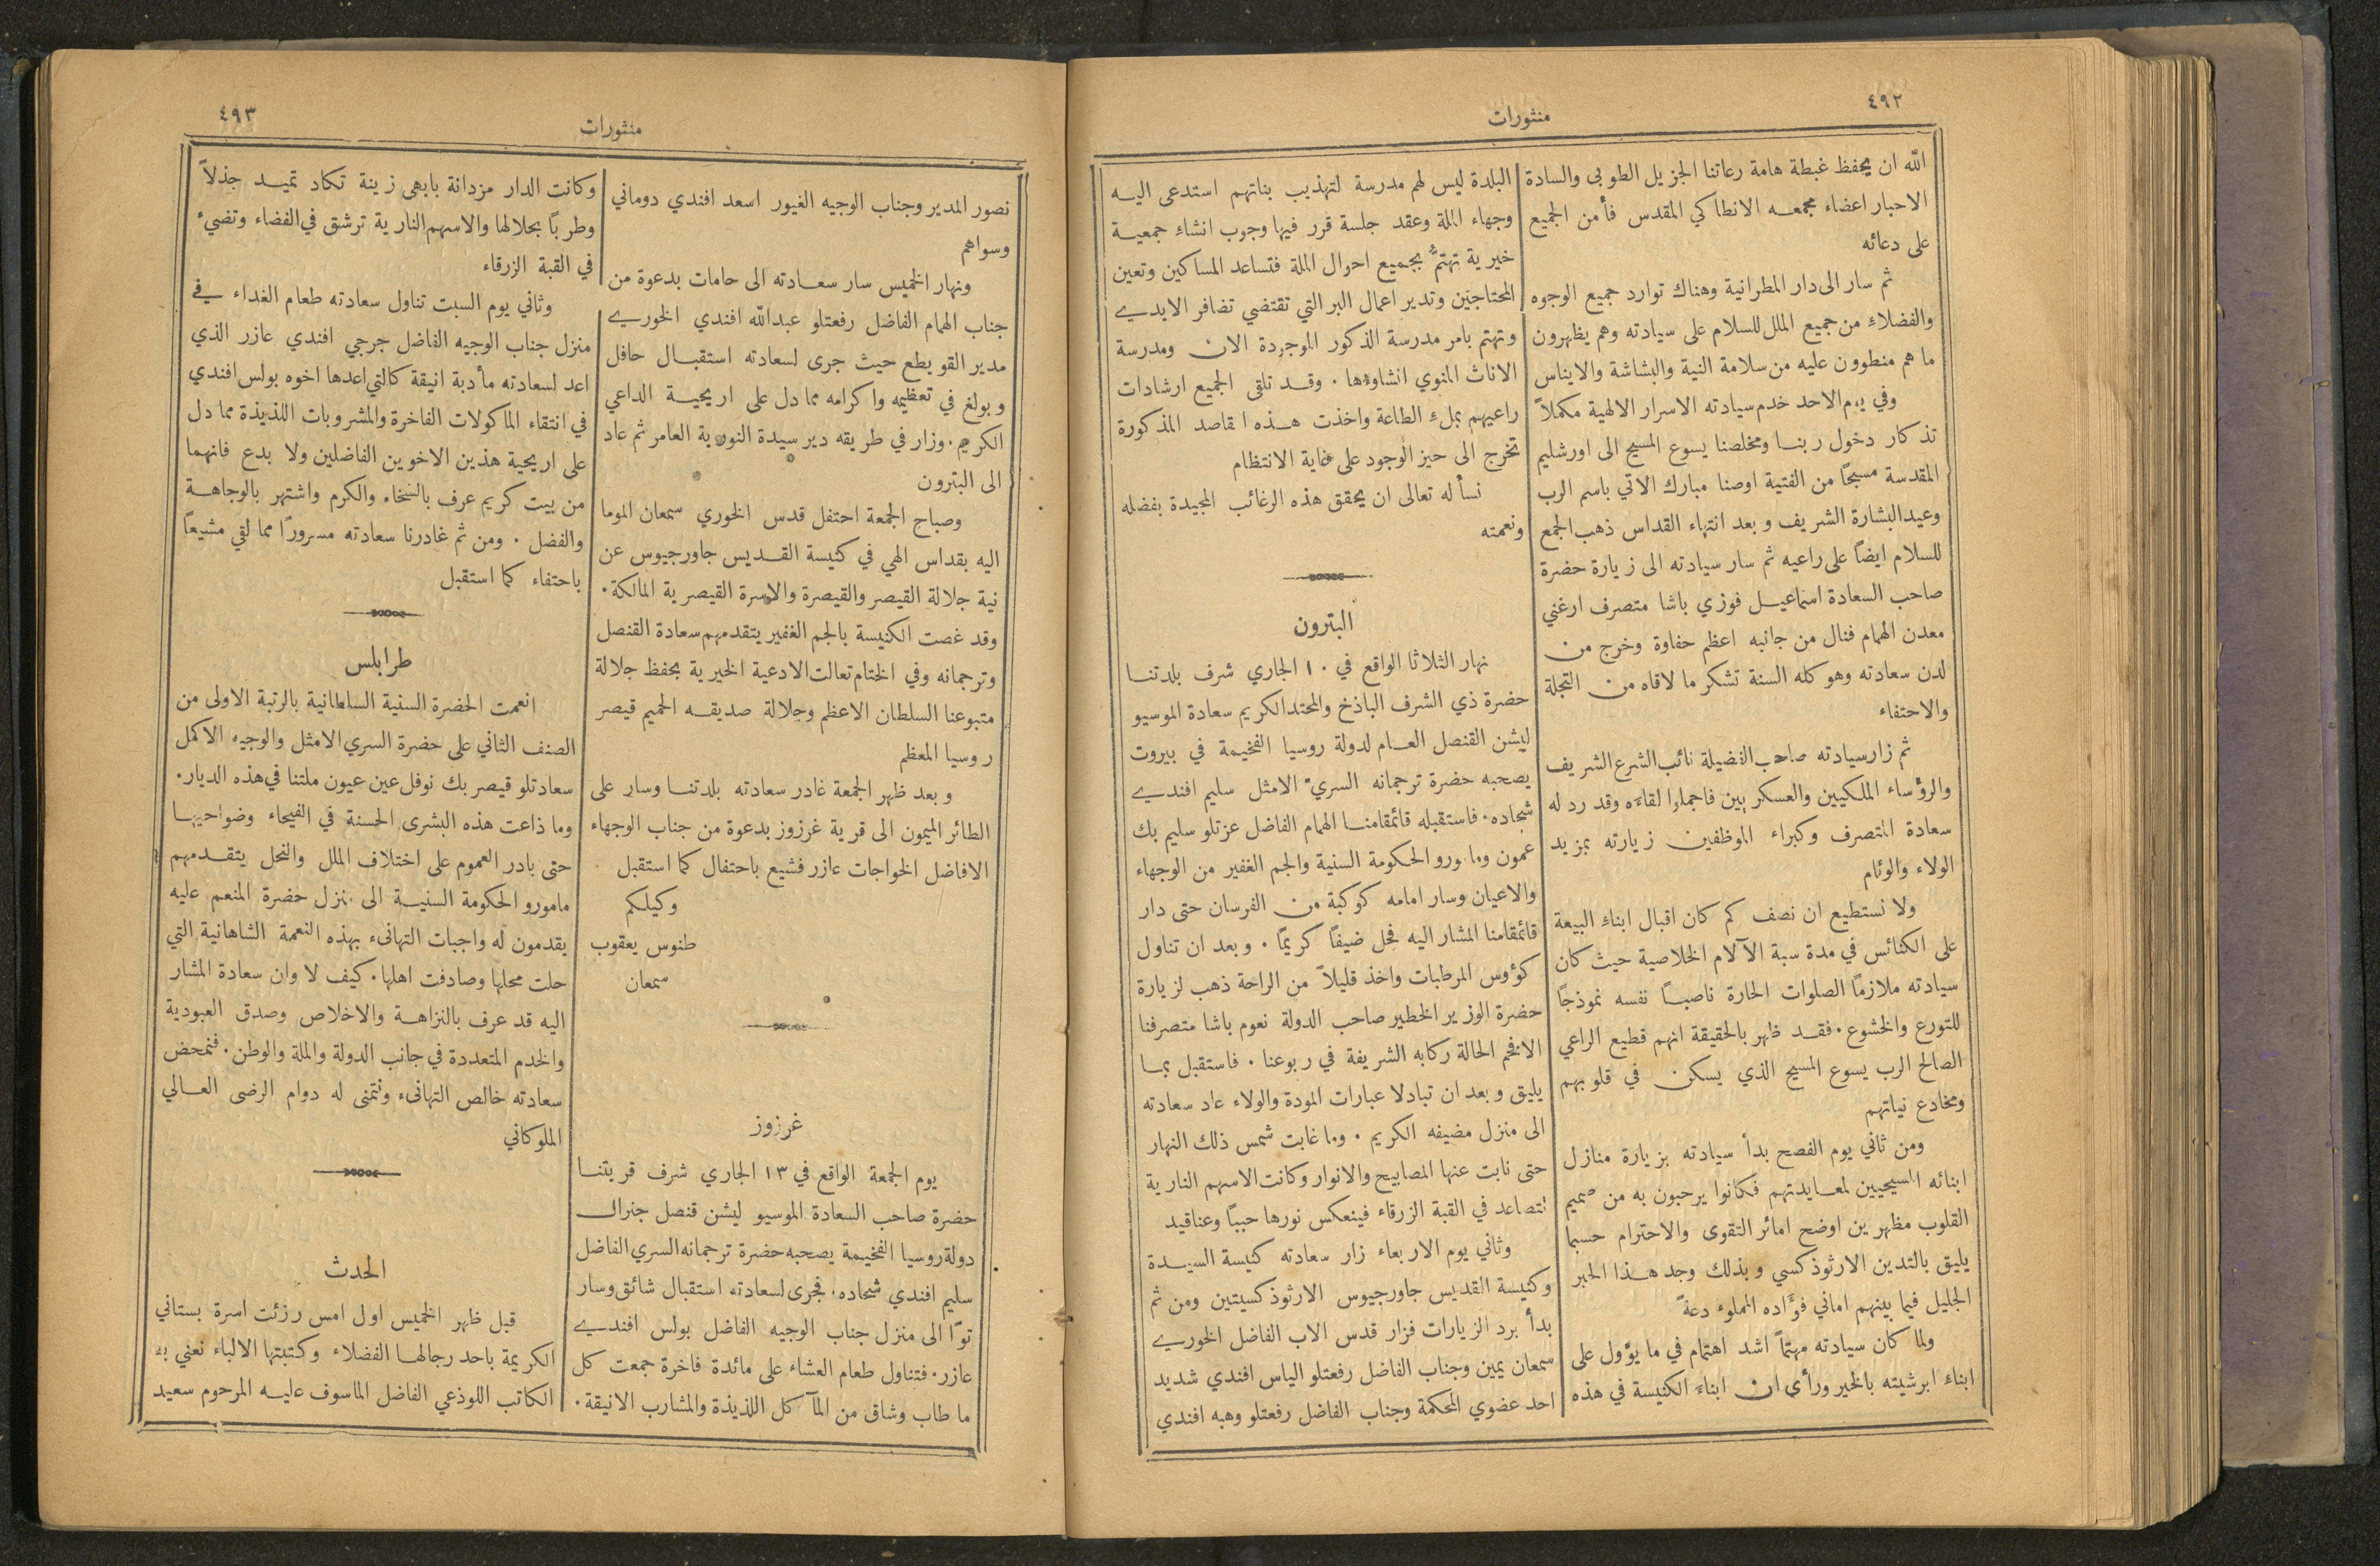 ٤٩٢
منثورات
الله ان يحفظ غبطة هامة رعاتنا الجزيل الطوبى والسادة
الاحبار اعضاء مجمعه الانطاكي المقدس فأمن الجميع
على دعائه
ثم سار الى دار المطرانية وهناك توارد جميع الوجوه
والفضلاء من جميع الملل للسلام على سيادته وهم يظهرون
ما هم منطوون عليه من سلامة النية والبشاشة والايناس
وفي يوم الاحد خدم سيادته الاسرار الالهية مكملاً
تذكار دخول ربنا ومخلصنا يسوع المسيح الى اورشليم
المقدسة مسبحًا من الفتية اوصنا مبارك الاتي باسم الرب
وعيد البشارة الشريف وبعد انتهاء القداس ذهب الجمع
للسلام ايضًا على راعيه ثم سار سيادته الى زيارة حضرة
صاحب السعادة اسماعيل فوزي باشا متصرف ارغني
معدن الهمام فنال من جانبه اعظم حفاوة وخرج من
لدن سعادته وهو كله السنة تشكر ما لاقاه من التجلة
والاحتفاء
ثم زار سيادته صاحب الفضيلة نائب الشرع الشريف
والرؤساء الملكيين والعسكريين فاجملوا لقاءه وقد رد له
سعادة المتصرف وكبراء الموظفين زيارته بمزيد
الولاء والوئام
ولا نستطيع ان نصف كم كان اقبال ابناء البيعة
على الكنائس في مدة سبة الآلام الخلاصية حيث كان
سيادته ملازمًا الصلوات الحارة ناصبًا نفسه نموذجًا
للتورع والخشوع. فقد ظهر بالحقيقة انهم قطيع الراعي
الصالح الرب يسوع المسيح الذي يسكن في قلوبهم
ومخادع نياتهم
ومن ثاني يوم الفصح بدأ سيادته بزيارة منازل
ابنائه المسيحيين لمعايدتهم فكانوا يرحبون به من صميم
القلوب مظهرين اوضح امائر التقوى والاحترام حسبما
يليق بالتدين الارثوذكسي وبذلك وجد هذا الحبر
الجليل فيما بينهم اماني فؤَاده المملوء دعةً
ولما كان سيادته مهتمًا اشد اهتمام في ما يؤول على
ابناء ابرشيته بالخير ورأى ان ابناءَ الكنيسة في هذه
البلدة ليس لهم مدرسة لتهذيب بناتهم استدعى اليه
وجهاء الملة وعقد جلسة قرر فيها وجوب انشاء جمعية
خيرية تهتمُّ بجميع احوال الملة فتساعد المساكين وتعين
المحتاجين وتدير اعمال البر التي تقتضي تضافر الايدي
وتهتم بامر مدرسة الذكور الموجودة الان ومدرسة
الاناث المنوي انشاؤها. وقد تلقى الجميع ارشادات
راعيهم بملءِ الطاعة واخذت هذه المقاصد المذكورة
تخرج الى حيز الوجود على غاية الانتظام
نسأله تعالى ان يحقق هذه الرغائب المجيدة بفضله
ونعمته
البترون
نهار الثلاثا الواقع في ١٠ الجاري شرف بلدتنا
حضرة ذي الشرف الباذخ والمحتد الكريم سعادة الموسيو
ليشن القنصل العام لدولة روسيا الفخيمة في بيروت
يصحبه حضرة ترجمانه السريّ الامثل سليم افندي
شحاده. فاستقبله قائمقامنا الهمام الفاضل عزتلو سليم بك
عمون ومامورو الحكومة السنية والجم الغفير من الوجهاء
والاعيان وسار امامه كوكبة من الفرسان حتى دار
قائمقامنا المشار اليه فحل ضيفًا كريمًا. وبعد ان تناول
كؤوس المرطبات واخذ قليلاً من الراحة ذهب لزيارة
حضرة الوزير الخطير صاحب الدولة نعوم باشا متصرفنا
الافخم الحالة ركابه الشريفة في ربوعنا. فاستقبل بما
يليق وبعد ان تبادلا عبارات المودة والولاء عاد سعادته
الى منزل مضيفه الكريم. وما غابت شمس ذلك النهار
حتى نابت عنها المصابيح والانوار وكانت الاسهم النارية
تتصاعد في القبة الزرقاء فينعكس نورها حببًا وعناقيد
وثاني يوم الاربعاء زار سعادته كنيسة السيدة
وكنيسة القديس جاورجيوس الارثوذكسيتين ومن ثم
بدأ برد الزيارات فزار قدس الاب الفاضل الخوري
سمعان يمين وجناب الفاضل رفعتلو الياس افندي شديد
احد عضوي المحكمة وجناب الفاضل رفعتلو وهبه افندي
٤٩٣
منثورات
نصور المدير وجناب الوجيه الغيور اسعد افندي دوماني
وسواهم
ونهار الخميس سار سعادته الى حامات بدعوة من
جناب الهمام الفاضل رفعتلو عبدالله افندي الخوري
مدير القويطع حيث جرى لسعادته استقبال حافل
وبولغ في تعظيمه واكرامه مما دل على اريحية الداعي
الكريم. وزار في طريقه دير سيدة النورية العامر ثم عاد
الى البترون
وصباح الجمعة احتفل قدس الخوري سمعان الموما
اليه بقداس الهي في كنيسة القديس جاورجيوس عن
نية جلالة القيصر والقيصرة والاسرة القيصرية المالكة.
وقد غصت الكنيسة بالجم الغفير يتقدمهم سعادة القنصل
وترجمانه وفي الختام تعالت الادعية الخيرية بحفظ جلالة
متبوعنا السلطان الاعظم وجلالة صديقه الحميم قيصر
روسيا المعظم
وبعد ظهر الجمعة غادر سعادته بلدتنا وسار على
الطائر الميمون الى قرية غرزوز بدعوة من جناب الوجهاء
الافاضل الخواجات عازر فشيع باحتفال كما استقبل
وكيلكم
طنوس يعقوب
سمعان
غرزوز
يوم الجمعة الواقع في ١٣ الجاري شرف قريتنا
حضرة صاحب السعادة الموسيو ليشن قنصل جنرال
دولة روسيا الفخيمة يصحبه حضرة ترجمانه السري الفاضل
سليم افندي شحاده. فجرى لسعادته استقبال شائق وسار
توًا الى منزل جناب الوجيه الفاضل بولس افندي
عازر. فتناول طعام العشاء على مائدة فاخرة جمعت كل
ما طاب وشاق من المآكل اللذيذة والمشارب الانيقة.
وكانت الدار مزدانة بابهى زينة تكاد تميد جذلاً
وطربًا بحلالها والاسهم النارية ترشق في الفضاء وتضيء
في القبة الزرقاء
وثاني يوم السبت تناول سعادته طعام الغداء في
منزل جناب الوجيه الفاضل جرجي افندي عازر الذي
اعد لسعادته مأدبة انيقة كالتي اعدها اخوه بولس افندي
في انتقاء الماكولات الفاخرة والمشروبات اللذيذة مما دل
على اريحية هذين الاخوين الفاضلين ولا بدع فانهما
من بيت كريم عرف بالسخاء والكرم واشتهر بالوجاهة
والفضل. ومن ثم غادرنا سعادته مسرورًا مما لقي مشيعاً
باحتفاء كما استقبل
طرابلس
انعمت الحضرة السنية السلطانية بالرتبة الاولى من
الصنف الثاني على حضرة السري الامثل والوجيه الاكمل
سعادتلو قيصر بك نوفل عين عيون ملتنا في هذه الديار.
وما ذاعت هذه البشرى الحسنة في الفيحاء وضواحيها
حتى بادر العموم على اختلاف الملل والنحل يتقدمهم
مامورو الحكومة السنية الى منزل حضرة المنعم عليه
يقدمون له واجبات التهانىء بهذه النعمة الشاهانية التي
حلت محلها وصادفت اهلها. كيف لا وان سعادة المشار
اليه قد عرف بالنزاهة والاخلاص وصدق العبودية
والخدم المتعددة في جانب الدولة والملة والوطن. فنمحض
سعادته خالص التهانىء ونتمنى له دوام الرضى العالي
الملوكاني
الحدث
قبل ظهر الخميس اول امس رزئت اسرة بستاني
الكريمة باحد رجالها الفضلاء وكتبتها الالباء نعني به
الكاتب اللوذعي الفاضل الماسوف عليه المرحوم سعيد